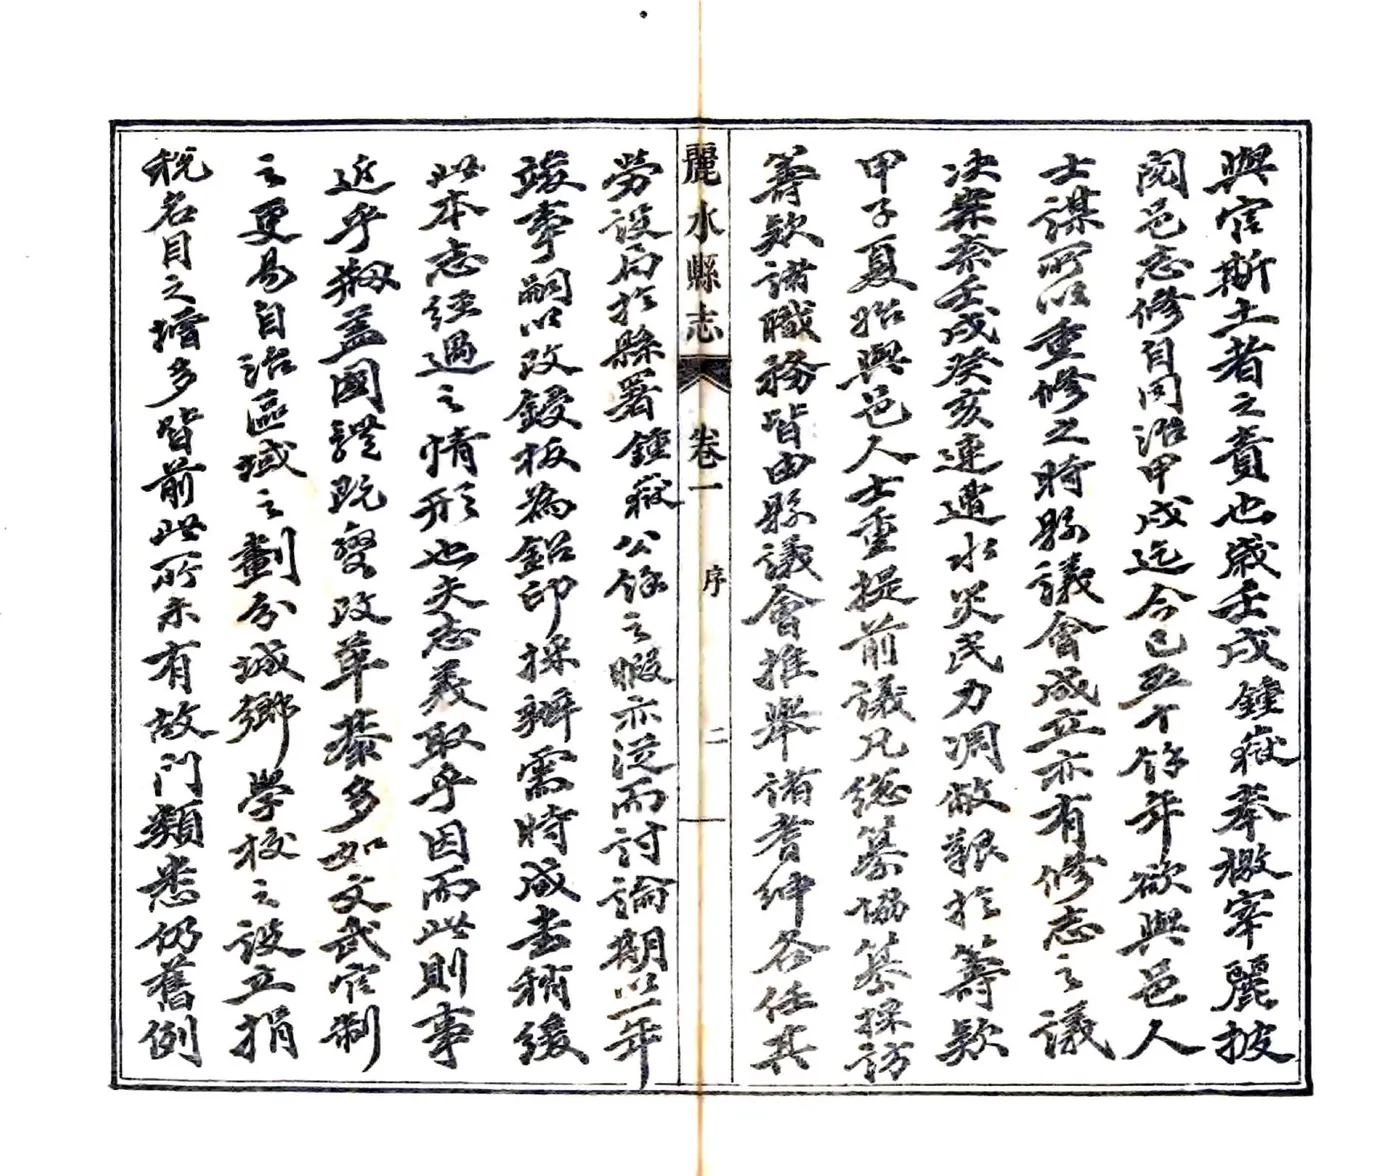 與官斯土者之責也歲壬戌鍾嶽奉檄宰麗披
閱邑志修自同治甲戌迄今已五十餘年欲與邑人
士謀所以重修之時縣議會成立亦有修志之議
決案奈壬戌癸亥連遭水災民力凋敝艱於籌款
甲子夏始與邑人士重提前議凡總纂協纂採訪
籌款諸職務皆由縣議會推舉諸耆紳各任其
麗水縣志 卷一 序 二
勞設局於縣署鍾嶽公餘之暇亦從而討論期以一年
竣事嗣以改鋟板為鉛印採辦需時成書稍緩
此本志經過之情形也夫志義取乎因而此則事
近乎剏蓋國體既變改革綦多如文武官制
之更易自治區域之劃分城鄉學校之設立捐
稅名目之增多皆前此所未有故門類悉仍舊例